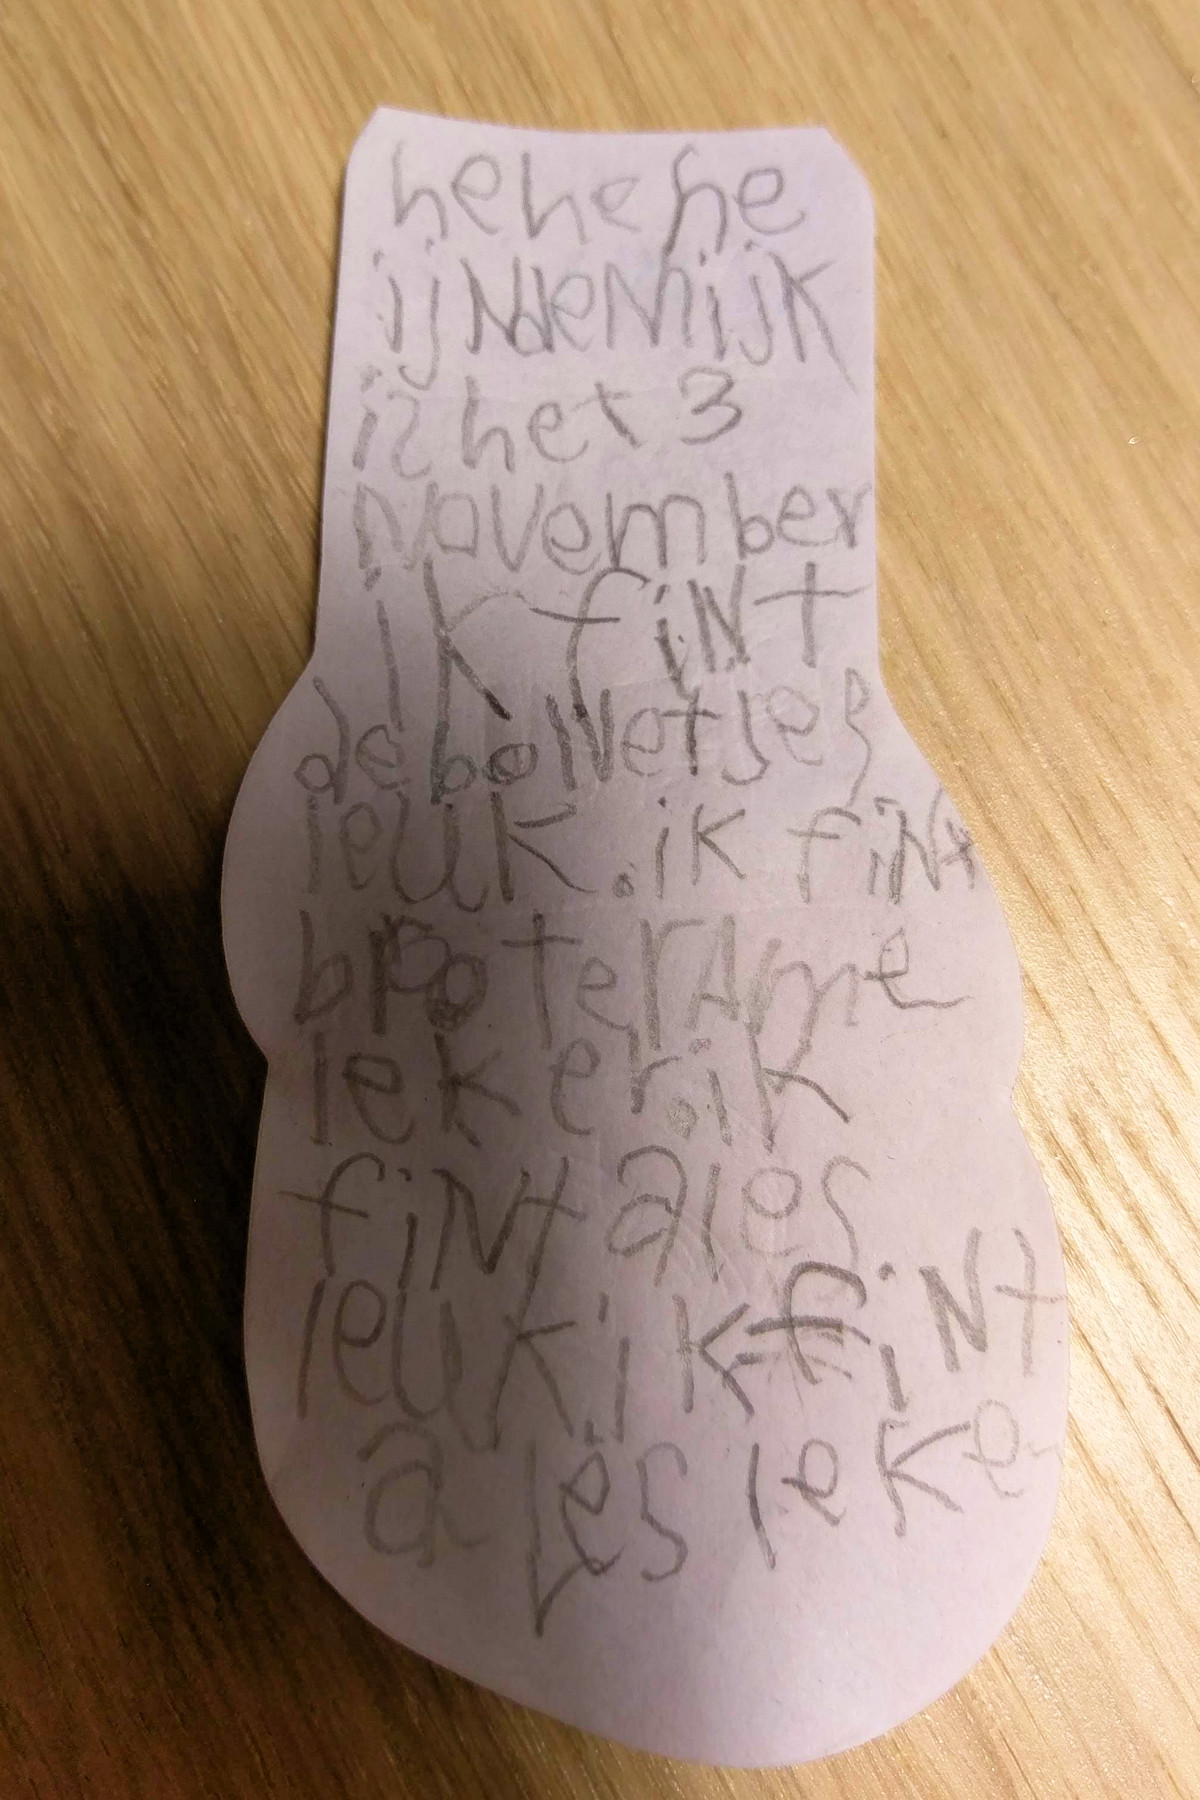 hehehe
ijNdeMijk
is het 3
November
ik fiNt
de boNetjes
leuk. ik fiNt
broterAme
leker. ik
fiNt ales
leuk ik fiNt
ales leke